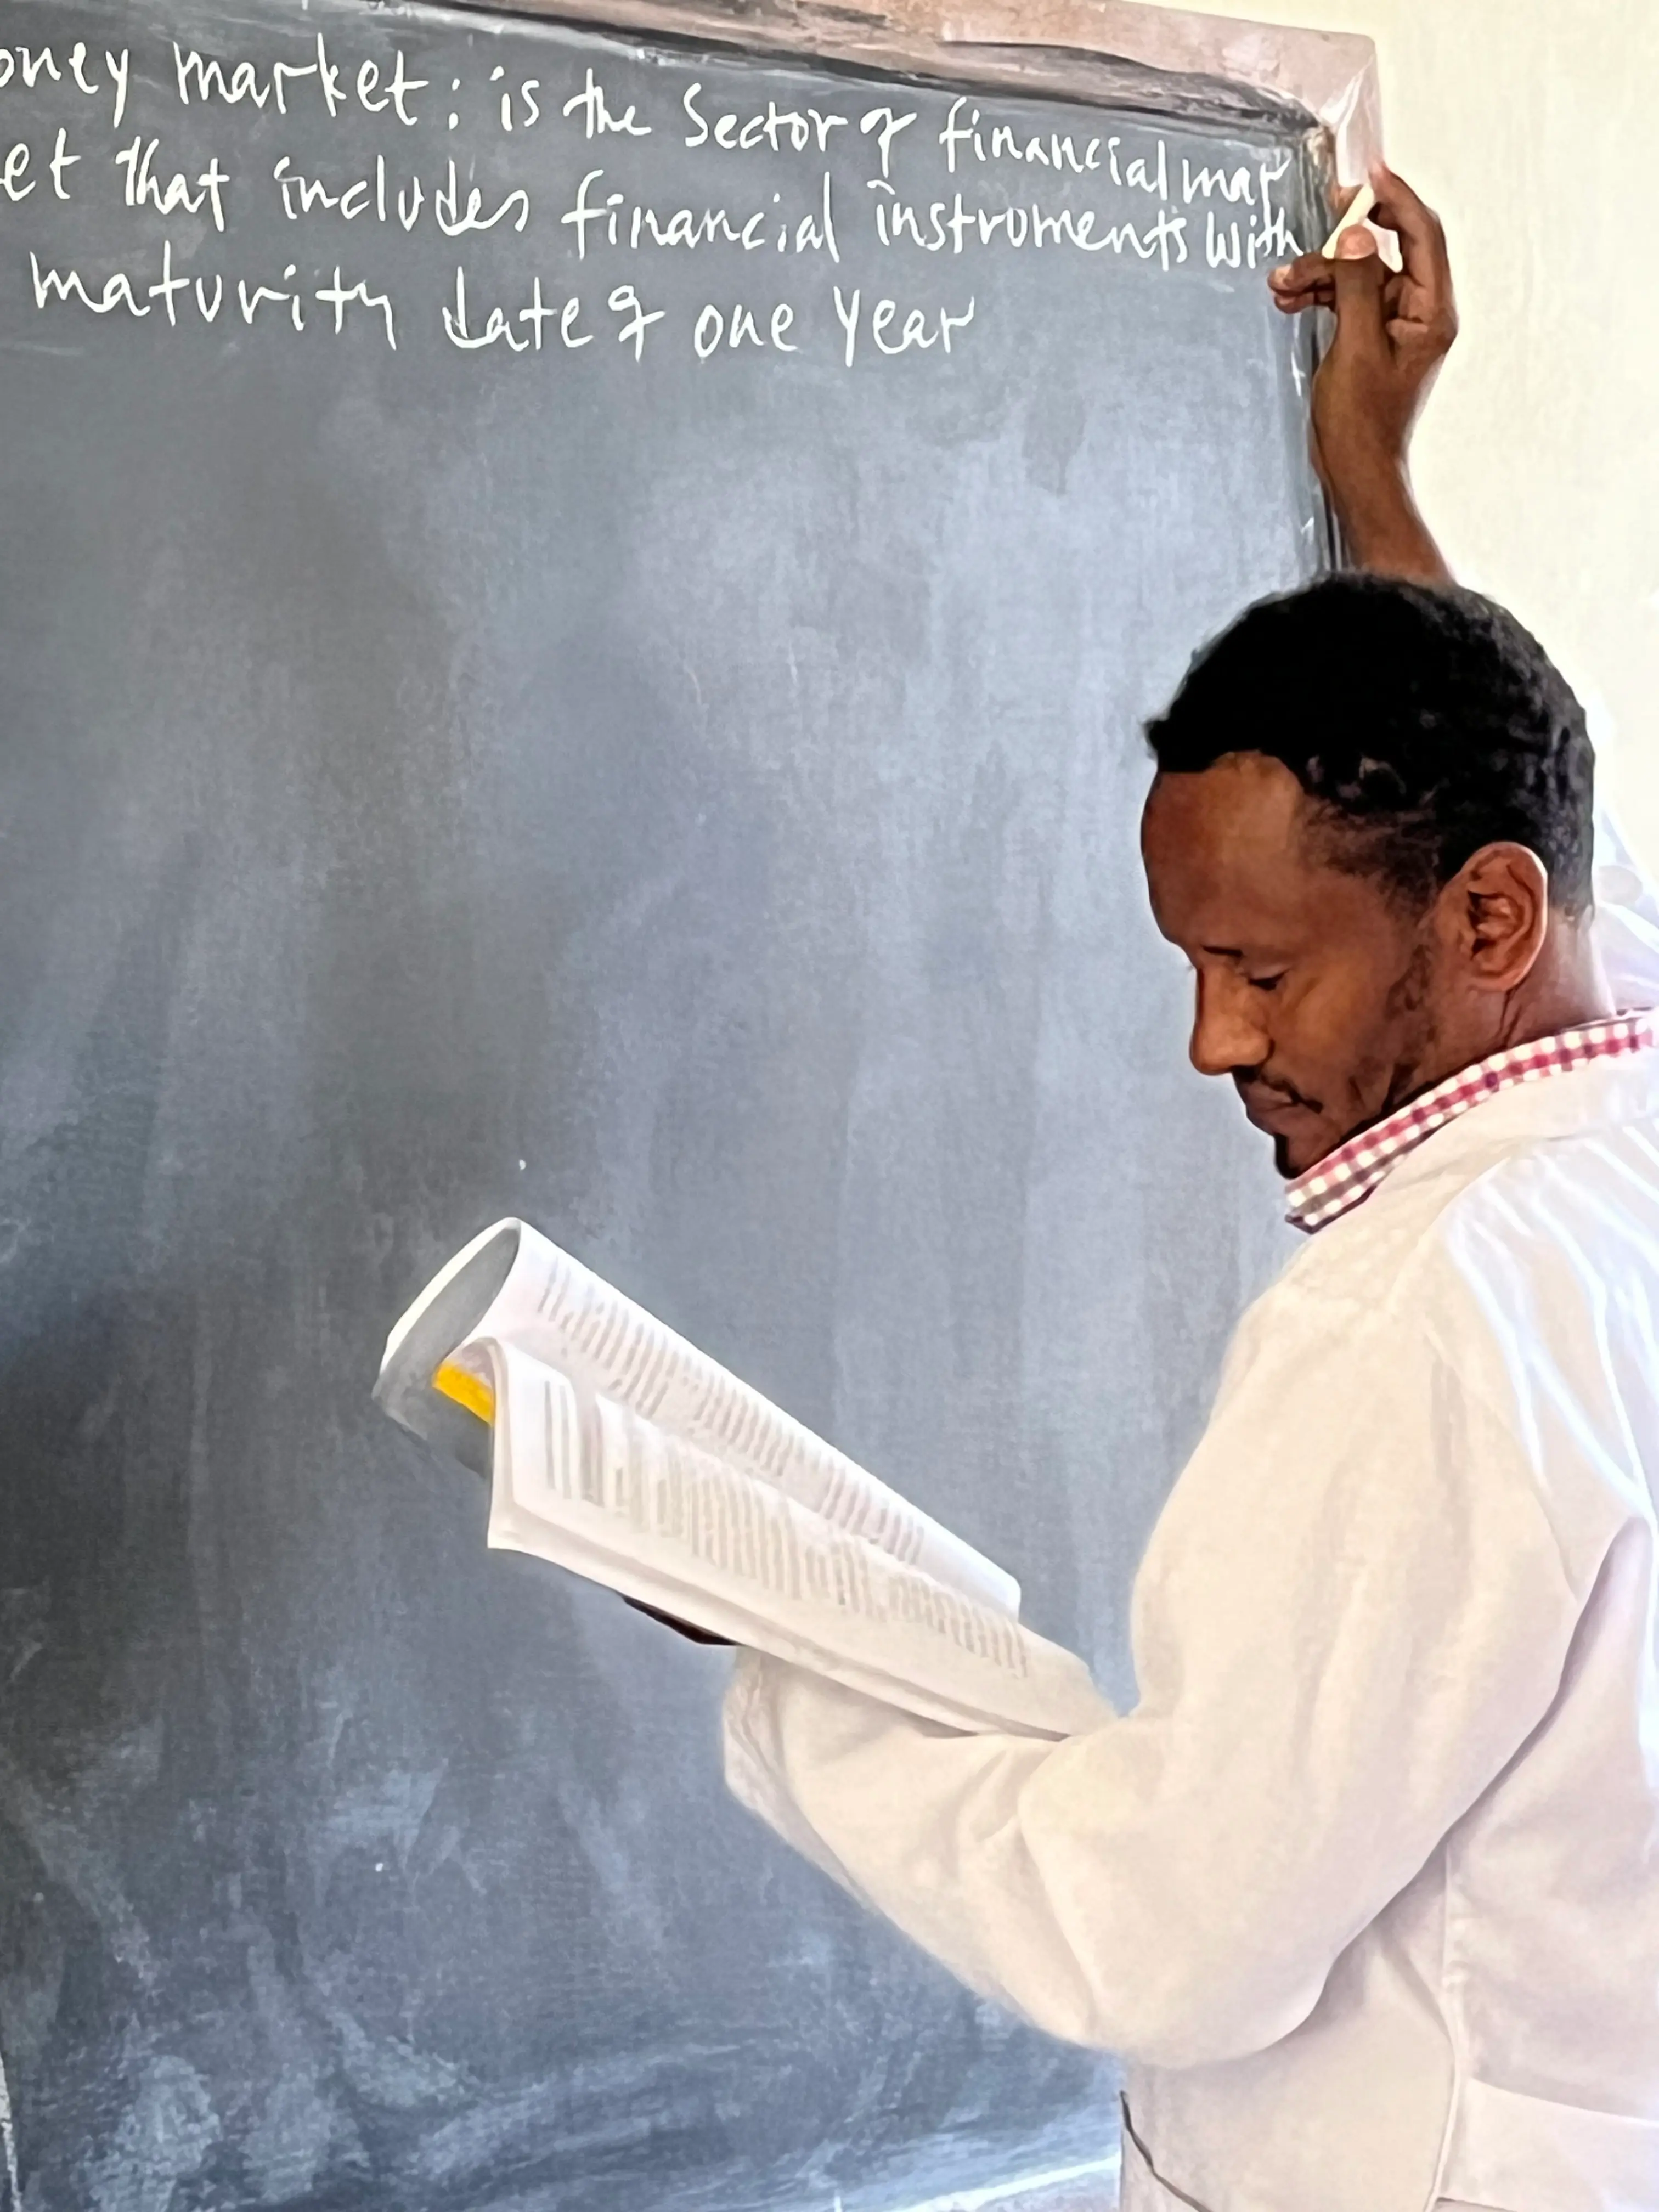 oney market: is the Sector of financial mar
et that includes financial instroments with
maturity date of one year